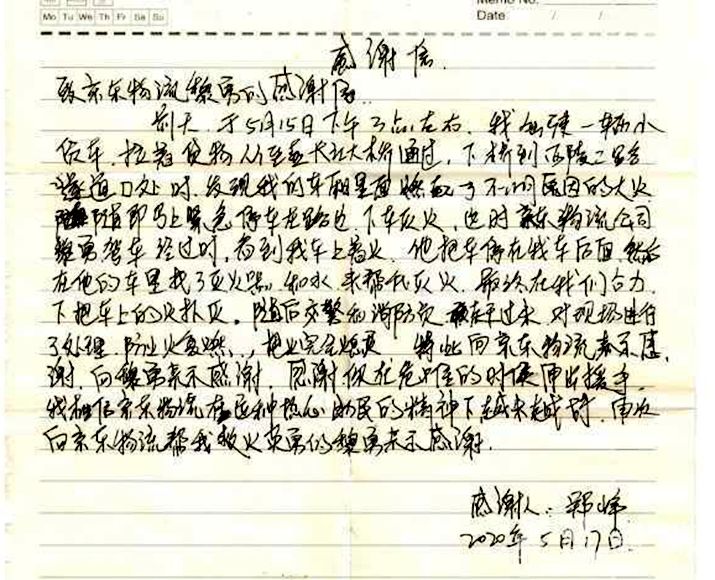 Memo No.
Mo Tu We Th Fr Sa Su
Date / /
感谢信.
致京东物流黎勇的感谢信.
前天.于5月15日下午3点左右.我驾驶一辆小
货车,拉着货物从宜昌长江大桥通过,下桥到西陵二路
隧道口处时.发现我的车厢里面燃起了不明原因的大火
随即马上紧急停车在路边下车灭火,这时京东物流公司
黎勇驾车经过时,看到我车上着火.他把车停在我车后面,然后
在他的车里找了灭火器和水来帮我灭火.最终在我们合力
下把车上的火扑灭。随后交警和消防员赶过来对现场进行
了处理.防止火复燃.,特此向京东物流表示感
谢.向黎勇表示感谢.感谢你在危难的时候伸出援手.
我相信京东物流在这种热心助民的精神下越来越好.再次
向京东物流帮我救火英勇的黎勇表示感谢.
感谢人:郑
2020年5月17日.